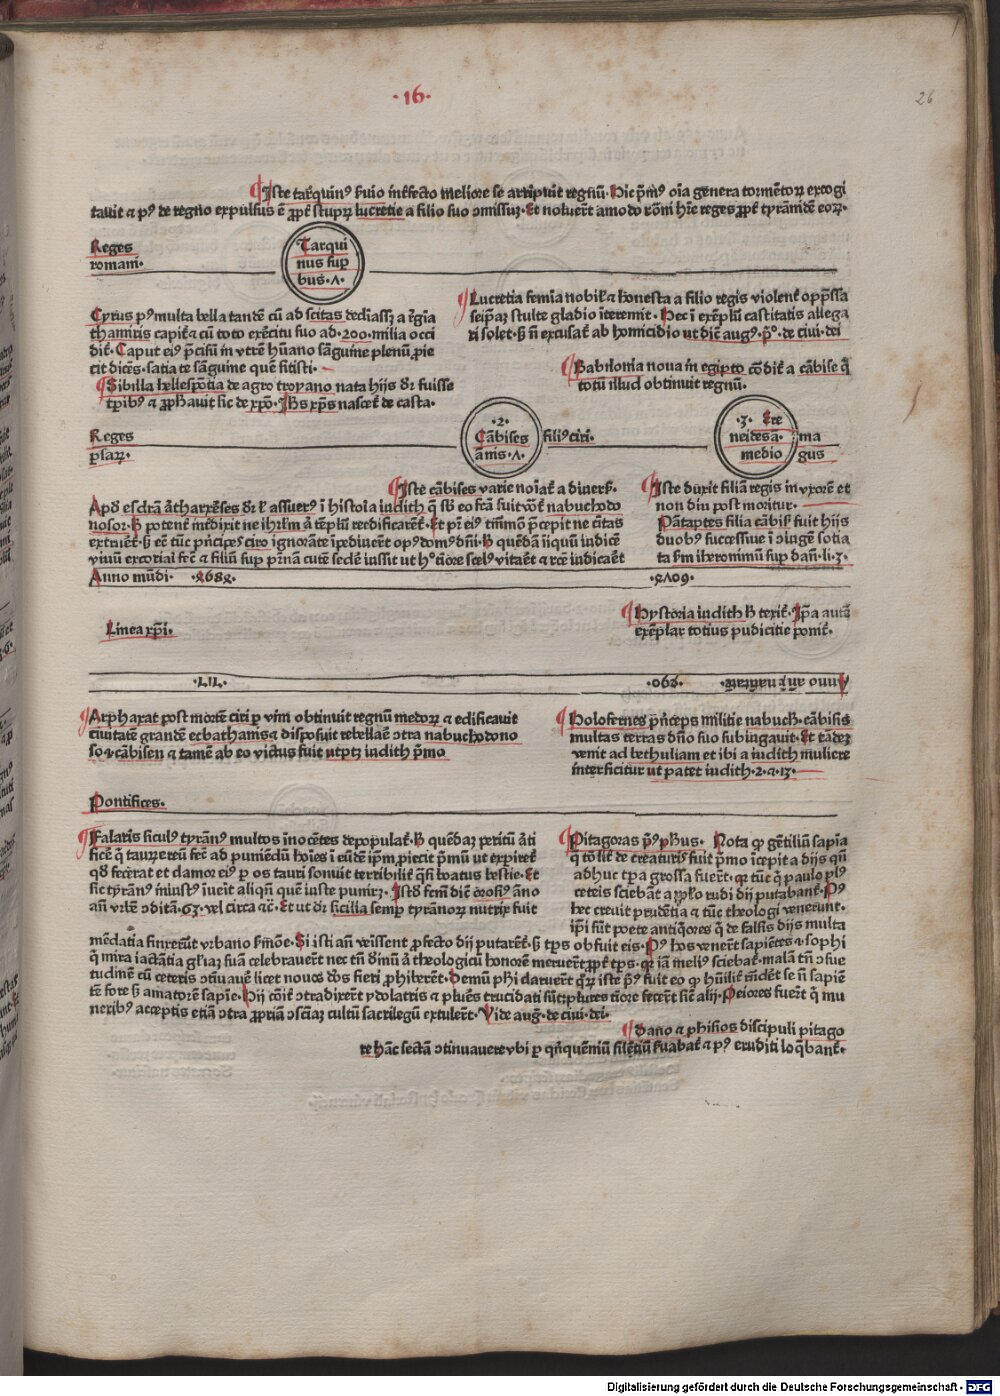 ·16·
26
¶Iste tarq̃uin⁹ s̃uio int̃efecto meliore se arripuit regnũ. Hic p̃m⁹ oĩa genera tormẽtoꝝ excogi
tauit ⁊ p⁹ de regno expulsus ẽ ꝓpt̃ stupꝝ lucretie a filio suo ↄmissuꝫ. Et noluer̃t amodo rom̃i hr̃e reges ꝓpt̃ tyrãnidẽ eoꝝ.
Reges
romani.
Tarqui
nus sup
bus.
Cyrus p⁹ multa bella tandẽ cũ ad scitas decliassꝫ a r̃gia
thamiris capit̃ ⁊ cũ toto exẽcitu suo ad .200. milia occi
dit̃. Caput ei⁹ p̃cisũ in vtrẽ hũano sãguine plenũ ꝓie
cit dicẽs. satia te sãguine quẽ sitisti.
¶Lucretia femia nobil̃ ⁊ honesta a filio regis violent̃ opp̃ssa
seip̃aꝫ stulte gladio iteremit. Hec ĩ exẽplũ castitatis allega
ri solet. sꝫ ñ excusat̃ ab homicidio ut dic̃ aug⁹. p̃º. de ciui. dei
¶Sibilla hellespõtia de agro troyano nata hijs dr̃ fuisse
tp̃ib⁹ ⁊ ꝓphauit sic de xp̃o. Ihs xp̃s nascet̃ de casta.
¶Babilonia noua in egipto cõdit̃ a cãbise q̃
totũ illud obtinuit regnũ.
Reges
ꝑsaꝝ.
.2.
Cãbises
filius ciri.
.3. Ere
neides a.
medio
ma
gus
¶Iste cãbises varie noĩat̃ a diuers̃.
Apd̃ esdrã ãtharxẽses dr̃ ł assuer⁹ ĩ histoia iudith q̃ sb̃ eo fcã fuit vot̃ nabuchodo
nosor. Hʼ potent̃ mẽdixit ne ihr̃lm ⁊ tẽplũ reedificarẽt̃. Et pr̃ ei⁹ tñ mõ p̃cepit ne ciuitas
extruet̃. sꝫ eẽ tũc p̃ncipes ciro ignorãte ĩpediuer̃t op⁹ dom⁹ dñi. Hʼ quẽdã iĩquũ iudicẽ
viuũ excoriai fec̃ ⁊ filiũ sup pr̃nã cutẽ sedẽ iussit ut hº tiore scel⁹ vitaẽt ⁊ rc̃e iudicaẽt
¶Iste duxit filiã regis in vxorẽ et
non diu post moritur.
Pãtaptes filia cãbis̃ fuit hijs
duob⁹ successiue ↄiũge socia
ta sm̃ iheronimũ sup dañ. li. 3.
Anno mũdi.
Linea xp̃i.
¶Hystoria iudith hʼ texit̃. Ip̃a autẽ
exẽplar totius pudicitie ponit̃.
Anno añ xp̃i natiuitatẽ.
¶Arpharat post mortẽ ciri ꝑ vim obtinuit regnũ medoꝝ ⁊ edificauit
ciuitatẽ grandẽ ecbathamis ⁊ disposuit rebellaẽ ↄtra nabuchodono
sor ⁊ cãbisen ⁊ tamẽ ab eo victus fuit ut ptꝫ iudith p̃mo
¶Holofernes p̃nceps militie nabuch. cãbisis
multas terras dño suo subiugauit. Et tãdeꝫ
venit ad bethuliam et ibi a iudith muliere
interficitur ut patet iudith. 2. ⁊. 13.
Pontifices.
¶Falaris sicul⁹ tyrãn⁹ multos ĩnocẽtes depopulat̃. Hʼ quẽdaꝫ peritũ arti
ficẽ q̃ tauꝝ ereũ fec̃ ad puniẽdũ hoĩes ĩ eũdẽ ip̃m piecit p̃mũ ut expiret̃
qd̃ fecerat et clamor ei⁹ ꝑ os tauri sonuit terribilit̃ q̃si boatus bestie. Et
sic tyrãn⁹ iniust⁹ iueit aliqñ quẽ iuste puniꝝ. Istd̃ fem̃ dic̃ orosi⁹ ãno
añ vrbẽ ↄditã. 63. vel circa ⁊c̃. Et ut dr̃ sicilia semp̃ tyrãnoꝝ nutrix fuit
¶Pitagoras p̃⁹ ph̃us. Nota q̃ gẽtiliũ sapia
q̃ tolit̃ de creaturis fuit p̃mo icepit a dijs qñ
adhuc tp̃a grossa fuer̃t. qꝛ tũc q̃ paulo pl⁹
ceteis sciebãt a ꝓplo rudi dij putabant̃. P⁹
hec creuit prudẽtia ⁊ tũc theologi venerunt.
ip̃i sũt poete antiq̃ores q̃ de falsis dijs multa
mẽdatia finxerũt vrbano s̃mõe. Si isti añ vẽissent ꝓfecto dij putarẽt̃. sꝫ tp̃s ob fuit eis. P⁹ hos venert̃ sapiẽtes ⁊ sophi
q̃ mira iactãtia gl̃iaꝫ suã celebrauert̃ nec tñ diuinũ ⁊ theologicũ honorẽ meruert̃ ꝓpt̃ tp̃s. qꝛ iã meli⁹ sciebat̃. malã tñ ↄsue
tudinẽ cũ ceteris ↄtiuauẽt licet nouos deos fieri ꝓhiberẽt. Demũ ph̃i datuert̃ q̃ꝝ iste p̃⁹ fuit eo q̃ hũilit̃ r̃ndẽt se ñ sapiẽ
tẽ fore sꝫ amatorẽ sapie. Hij cõit̃ ↄtradixert̃ ydolatris ⁊ plures trucidati sũt.
neribʒ acceptis etiã ↄtra ꝓpriã ↄsciaꝫ cultũ sacrilegũ extulert̃. Vide aug̃. de ciui. dei.
¶Dano ⁊ phisios discipuli pitago
re hãc sectã ↄtinuauere vbi ꝑ qñquẽniũ silẽtiũ s̃uabãt ⁊ p⁹ eruditi loq̃bant̃.
Digitalisierung gefördert durch die Deutsche Forschungsgemeinschaft - DFG